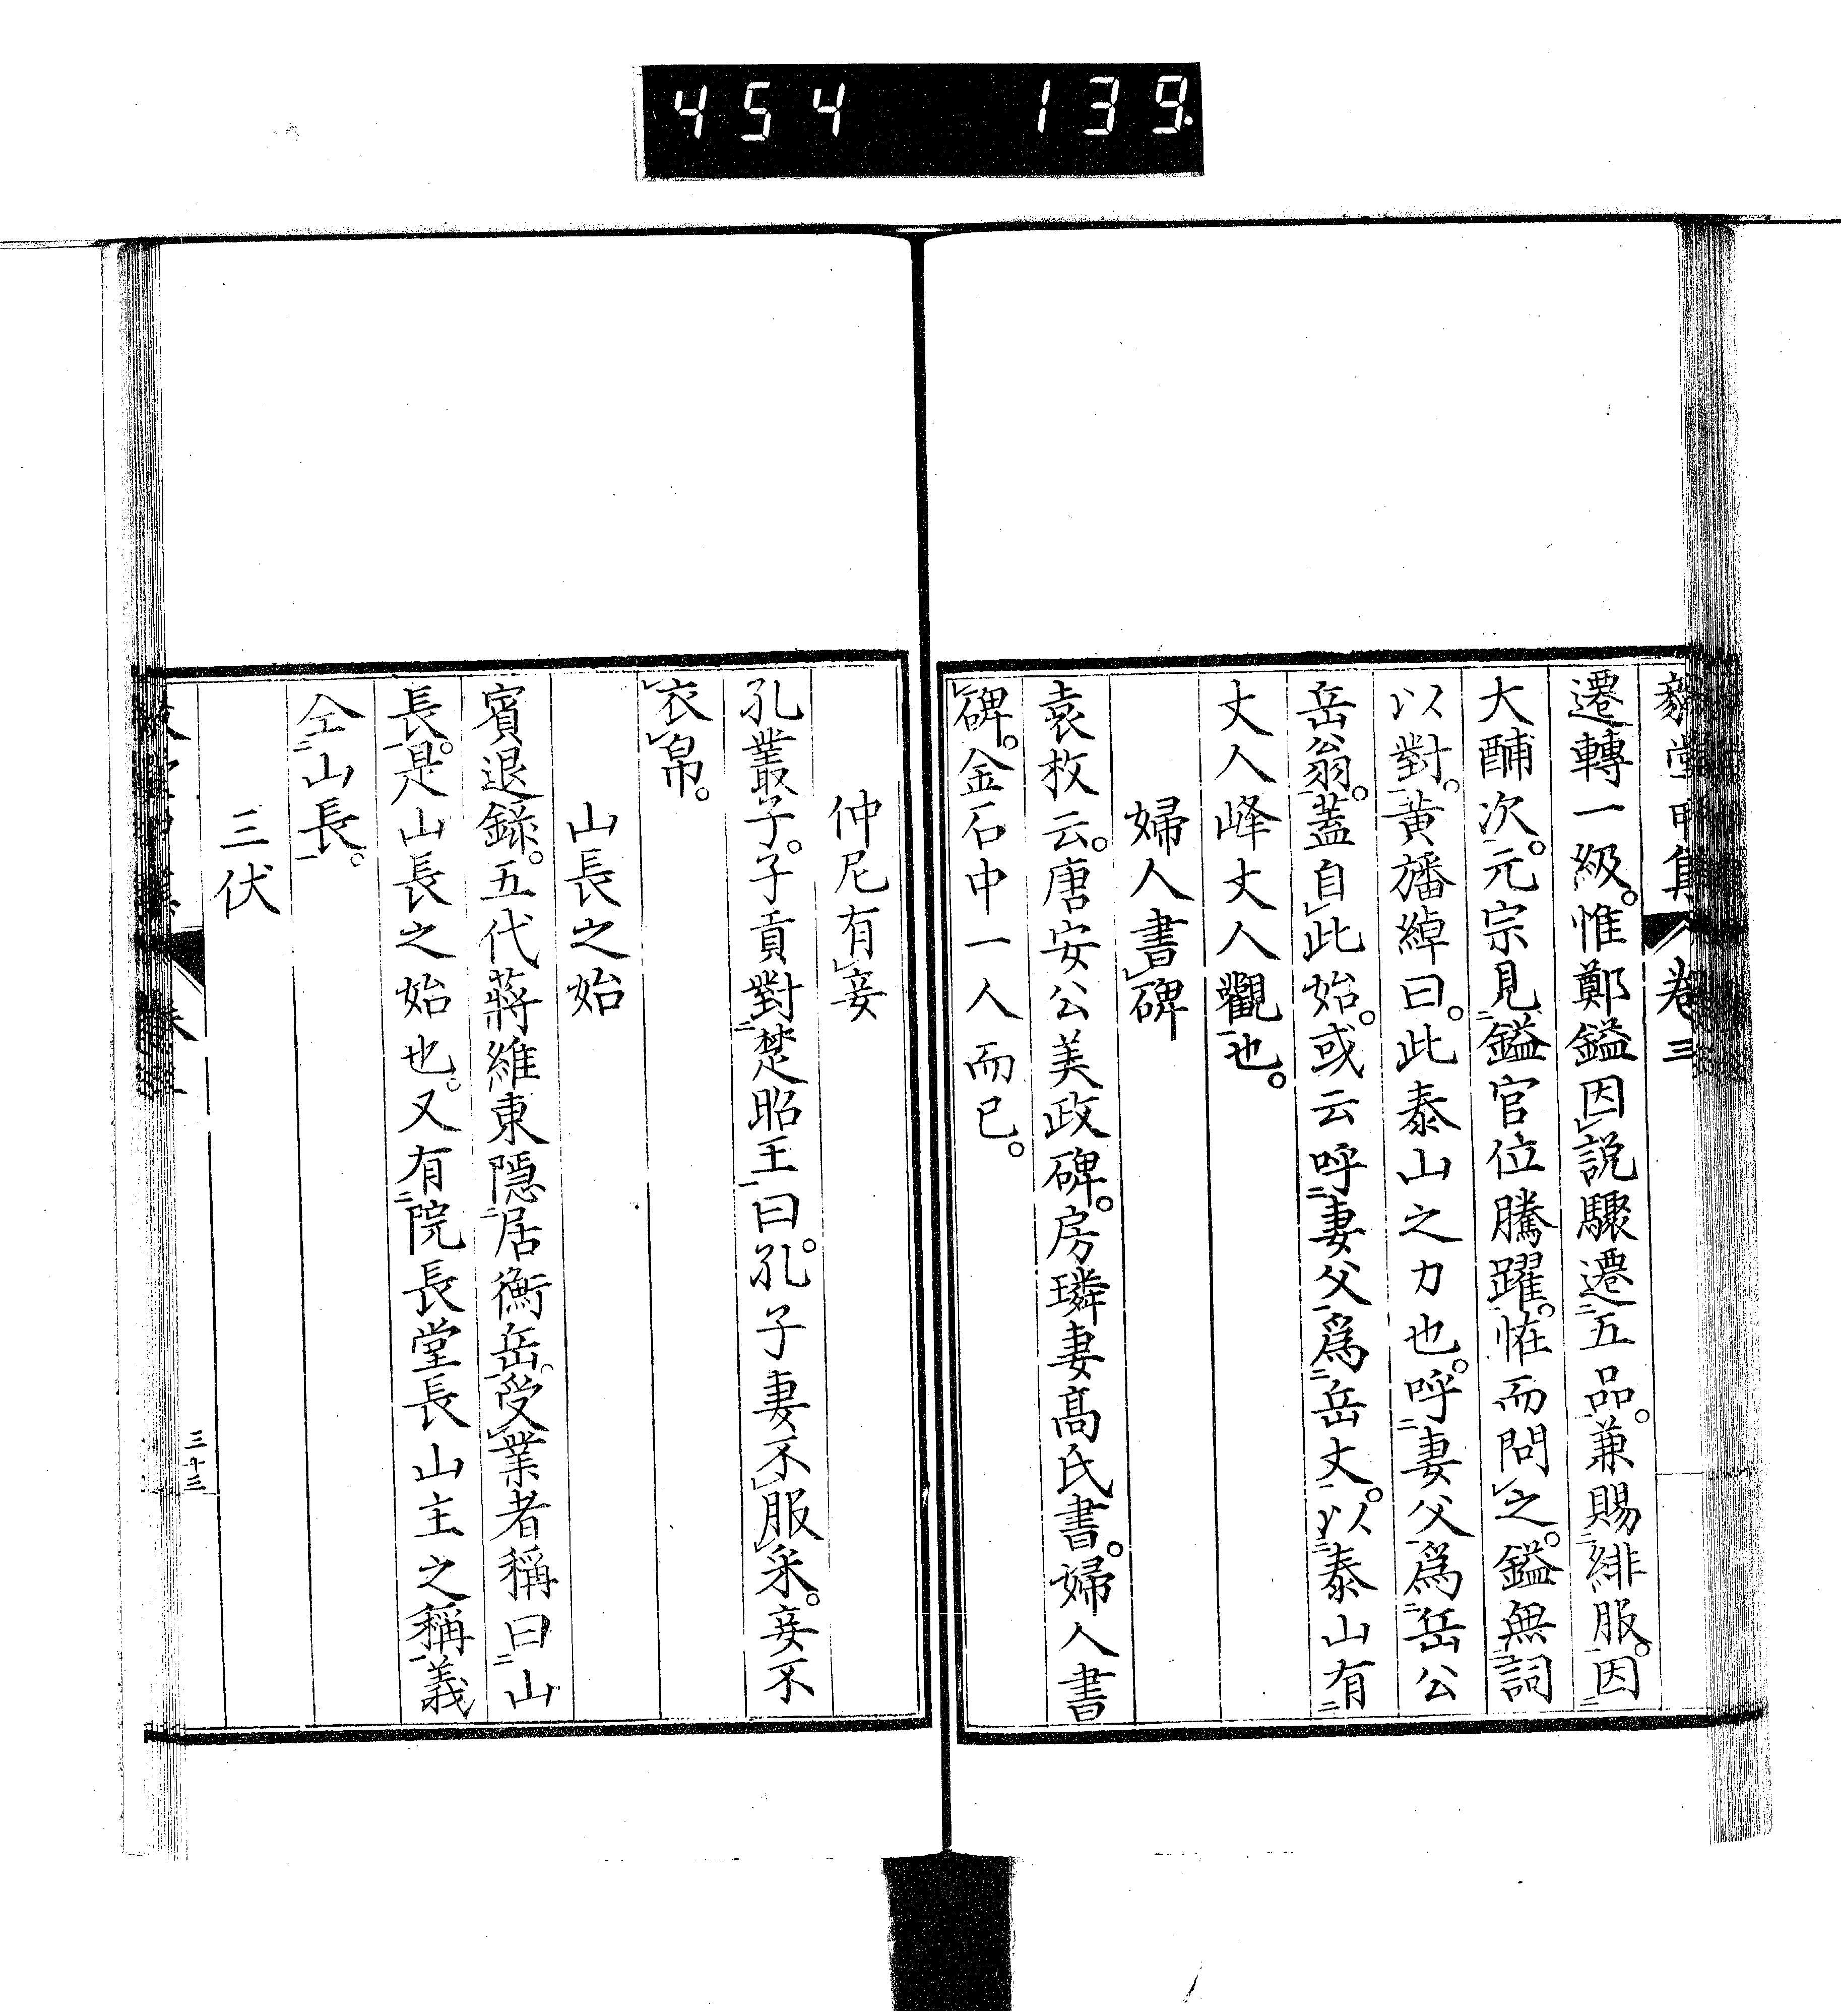 454 139
毅堂甲集 卷三
遷轉一級。惟鄭鎰因說驟遷五品。兼賜緋服。因
大酺次。元宗見鎰官位騰躍。恠而問之。鎰無詞
以對。黃旛綽曰。此泰山之力也。呼妻父爲岳公
岳翁。蓋自此始。或云呼妻父爲岳丈。以泰山有
丈人峰丈人觀也。
婦人書碑
袁枚云。唐安公美政碑。房璘妻高氏書。婦人書
碑。金石中一人而已。
仲尼有妾
孔叢子。子貢對楚昭王曰。孔子妻不服采。妾不
衣帛。
山長之始
賓退錄。五代蔣維東隱居衡岳。受業者稱曰山
長。是山長之始也。又有院長堂長山主之稱義
仝山長。
三伏
三十三